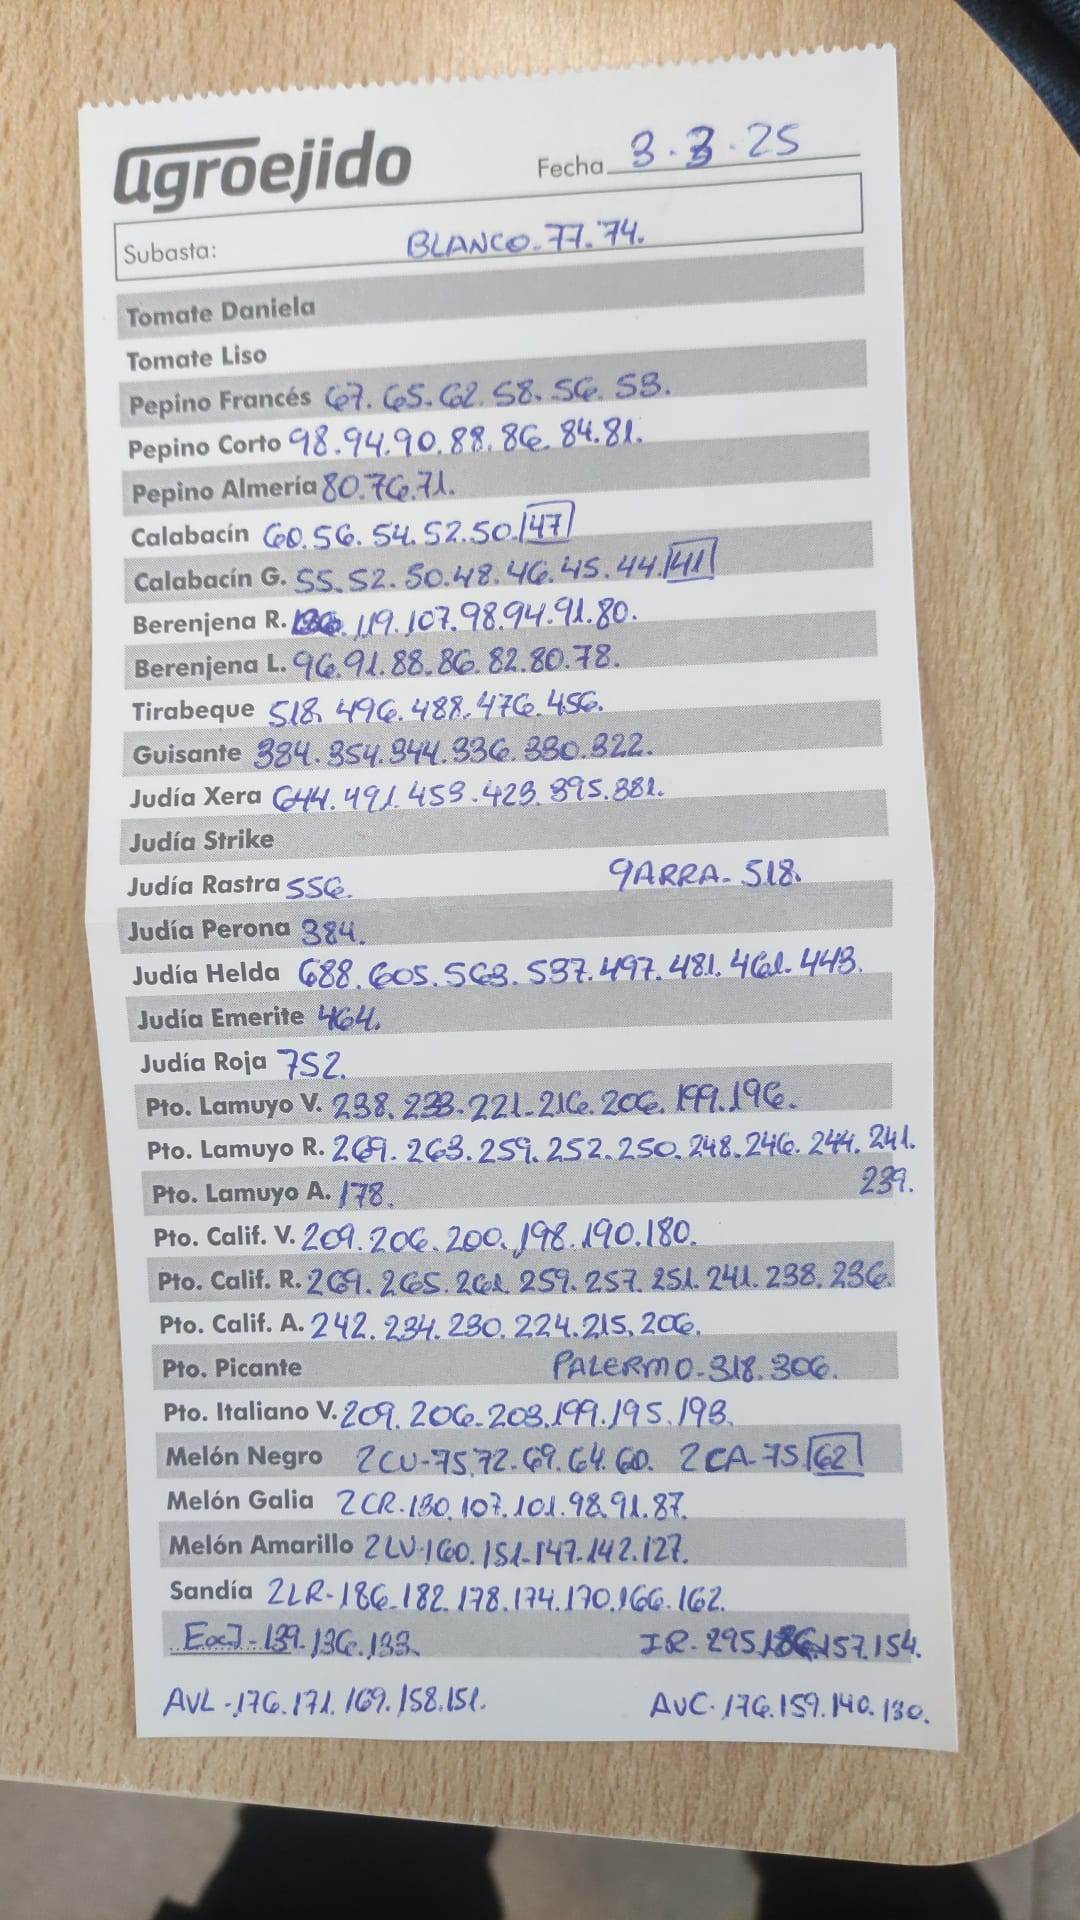 agroejido Fecha 3.3.25
Subasta: BLANCO-77.74.
Tomate Daniela
Tomate Liso
Pepino Francés 67.65.62.58.56.53.
Pepino Corto 98.94.90.88.86.84.81.
Pepino Almería 80.76.71.
Calabacín 60.56.54.52.50.47
Calabacín G. 55.52.50.48.46.45.44.41
Berenjena R. 119.107.98.94.91.80.
Berenjena L. 96.91.88.86.82.80.78.
Tirabeque 518.496.488.476.456.
Guisante 384.354.344.336.330.322.
Judía Xera 644.491.453.423.395.381.
Judía Strike
Judía Rastra 556. GARRA-518.
Judía Perona 384.
Judía Helda 688.605.563.537.497.481.461.443.
Judía Emerite 464.
Judía Roja 752.
Pto. Lamuyo V. 238.233.221.216.206.199.196.
Pto. Lamuyo R. 269.263.259.252.250.248.246.244.241.
Pto. Lamuyo A. 178. 239.
Pto. Calif. V. 209.206.200.198.190.180.
Pto. Calif. R. 269.265.261.259.257.251.241.238.236.
Pto. Calif. A. 242.234.230.224.215.206.
Pto. Picante PALERMO-318.306.
Pto. Italiano V. 209.206.203.199.195.193.
Melón Negro 2CU-75.72.69.64.60. 2CA-75.62
Melón Galia 2CR-130.107.101.98.91.87.
Melón Amarillo 2LV-160.151.147.142.127.
Sandía 2LR-186.182.178.174.170.166.162.
139.136.133. IR-295.186.157.154.
AVL-176.171.169.158.151. AVC-176.159.140.130.